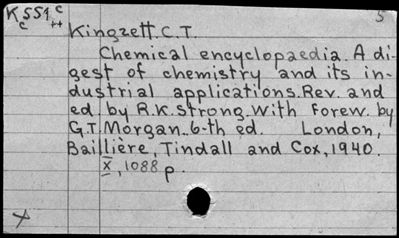 K551 c 5
c ++
Kingzett. C. T.
Chemical encyclopaedia. A di-
gest of chemistry and its in-
dustrial applications. Rev. and
ed. by R.K. Strong. With Forew. by
G.T. Morgan. 6-th ed. London,
Baillière, Tindall and Cox, 1940.
X, 1088 p.